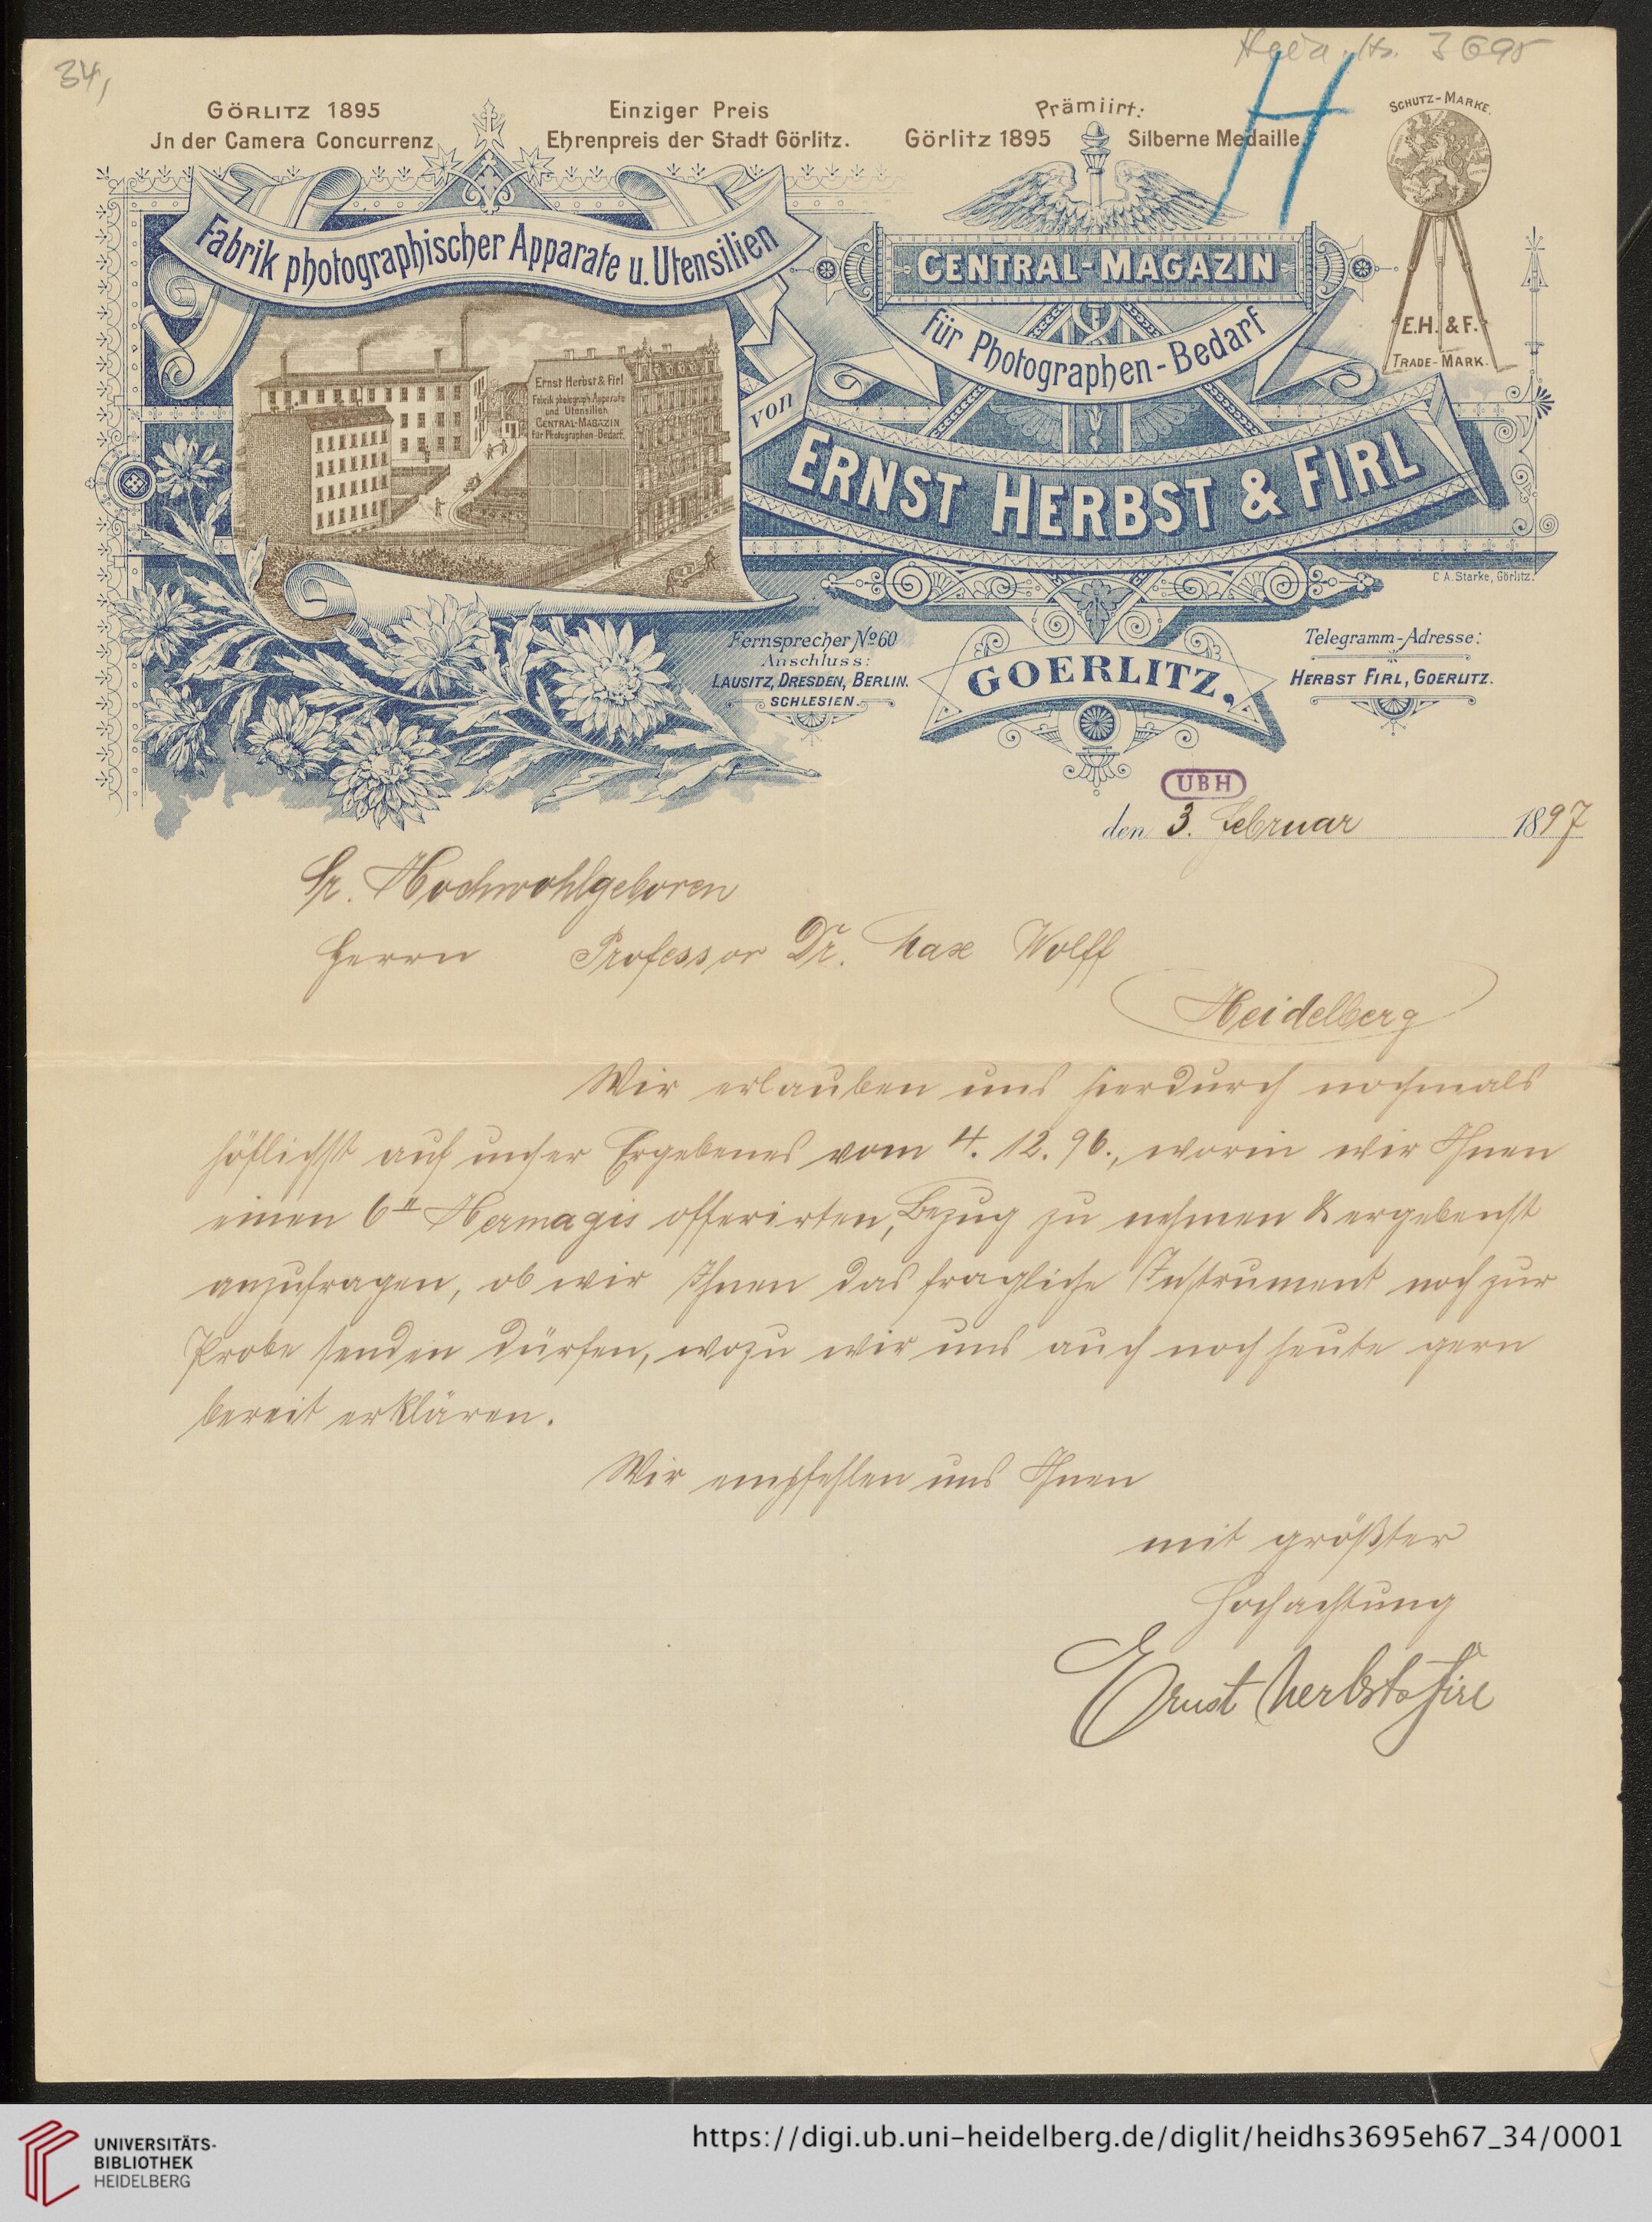 34,
Heid. Hs. 3695
H
GÖRLITZ 1895
Jn der Camera Concurrenz
Einziger Preis
Ehrenpreis der Stadt Görlitz.
Prämiirt:
Görlitz 1895 Silberne Medaille
SCHUTZ-MARKE.
Fabrik photographischer Apparate u. Utensilien
CENTRAL-MAGAZIN
für Photographen-Bedarf
E.H. & F.
TRADE-MARK.
Ernst Herbst & Firl
Fabrik photograph. Apparate
und Utensilien
CENTRAL-MAGAZIN
für Photographen-Bedarf.
von
ERNST HERBST & FIRL
C. A. Starke, Görlitz.
Fernsprecher No 60
Anschluss:
LAUSITZ, DRESDEN, BERLIN.
SCHLESIEN.
GOERLITZ,
Telegramm-Adresse:
HERBST FIRL, GOERLITZ.
UBH
den 3. Februar 1897
Sr. Hochwohlgeboren
Herrn Professor Dr. Max Wolff
Heidelberg
Wir erlauben uns hierdurch nochmals
höflichst auf unser Ergebenes vom 4. 12. 96., worin wir Ihnen
einen 6" Hermagis offerirten, Bezug zu nehmen & ergebenst
anzufragen, ob wir Ihnen das fragliche Instrument noch zur
Probe senden dürfen, wozu wir uns auch noch heute gern
bereit erklären.
Wir empfehlen uns Ihnen
mit größter
Hochachtung
Ernst Herbst & Firl
UNIVERSITÄTS-
BIBLIOTHEK
HEIDELBERG
https://digi.ub.uni-heidelberg.de/diglit/heidhs3695eh67_34/0001